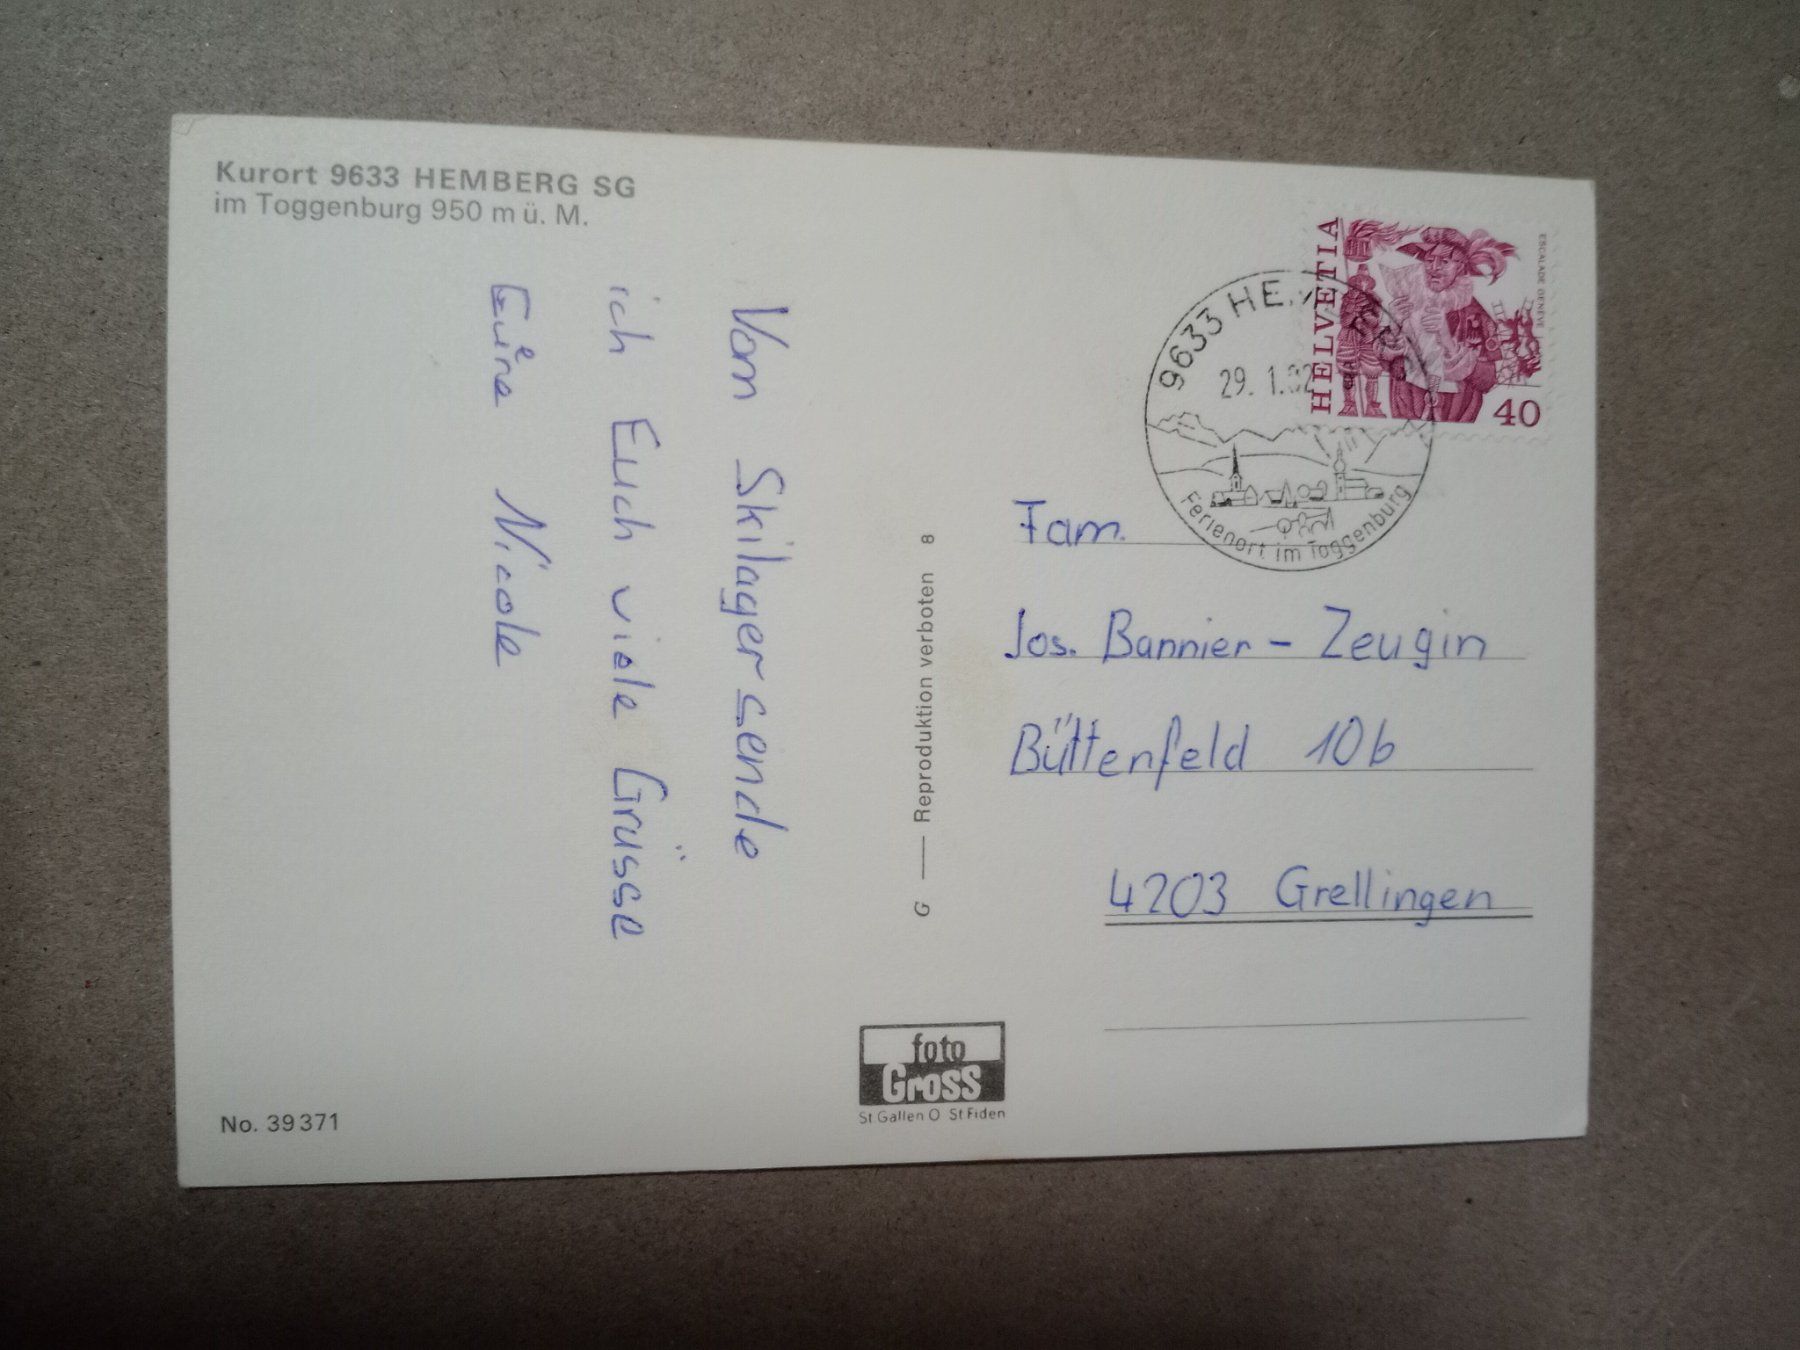 Kurort 9633 HEMBERG SG
im Toggenburg 950 m ü. M.
Vom Skilager sende
ich Euch viele Grüsse
Euere Nicole
No. 39371
G — Reproduktion verboten 8
foto
Gross
St Gallen O St Fiden
HELVETIA
ESCALADE GENÈVE
40
9633 HEMBERG
29. 1.82
Ferienort im Toggenburg
Fam.
Jos. Bannier - Zeugin
Büttenfeld 10b
4203 Grellingen